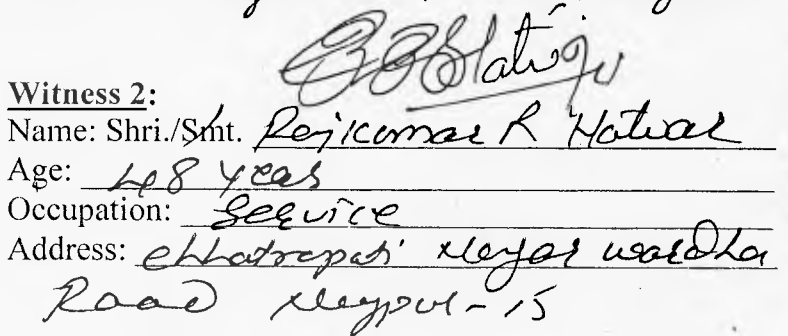 Witness 2:
Name: Shri./Smt. Rajkumar R Hatwar
Age: 48 years
Occupation: Service
Address: Chhatrapati Nagar wardha
Road Nagpur-15